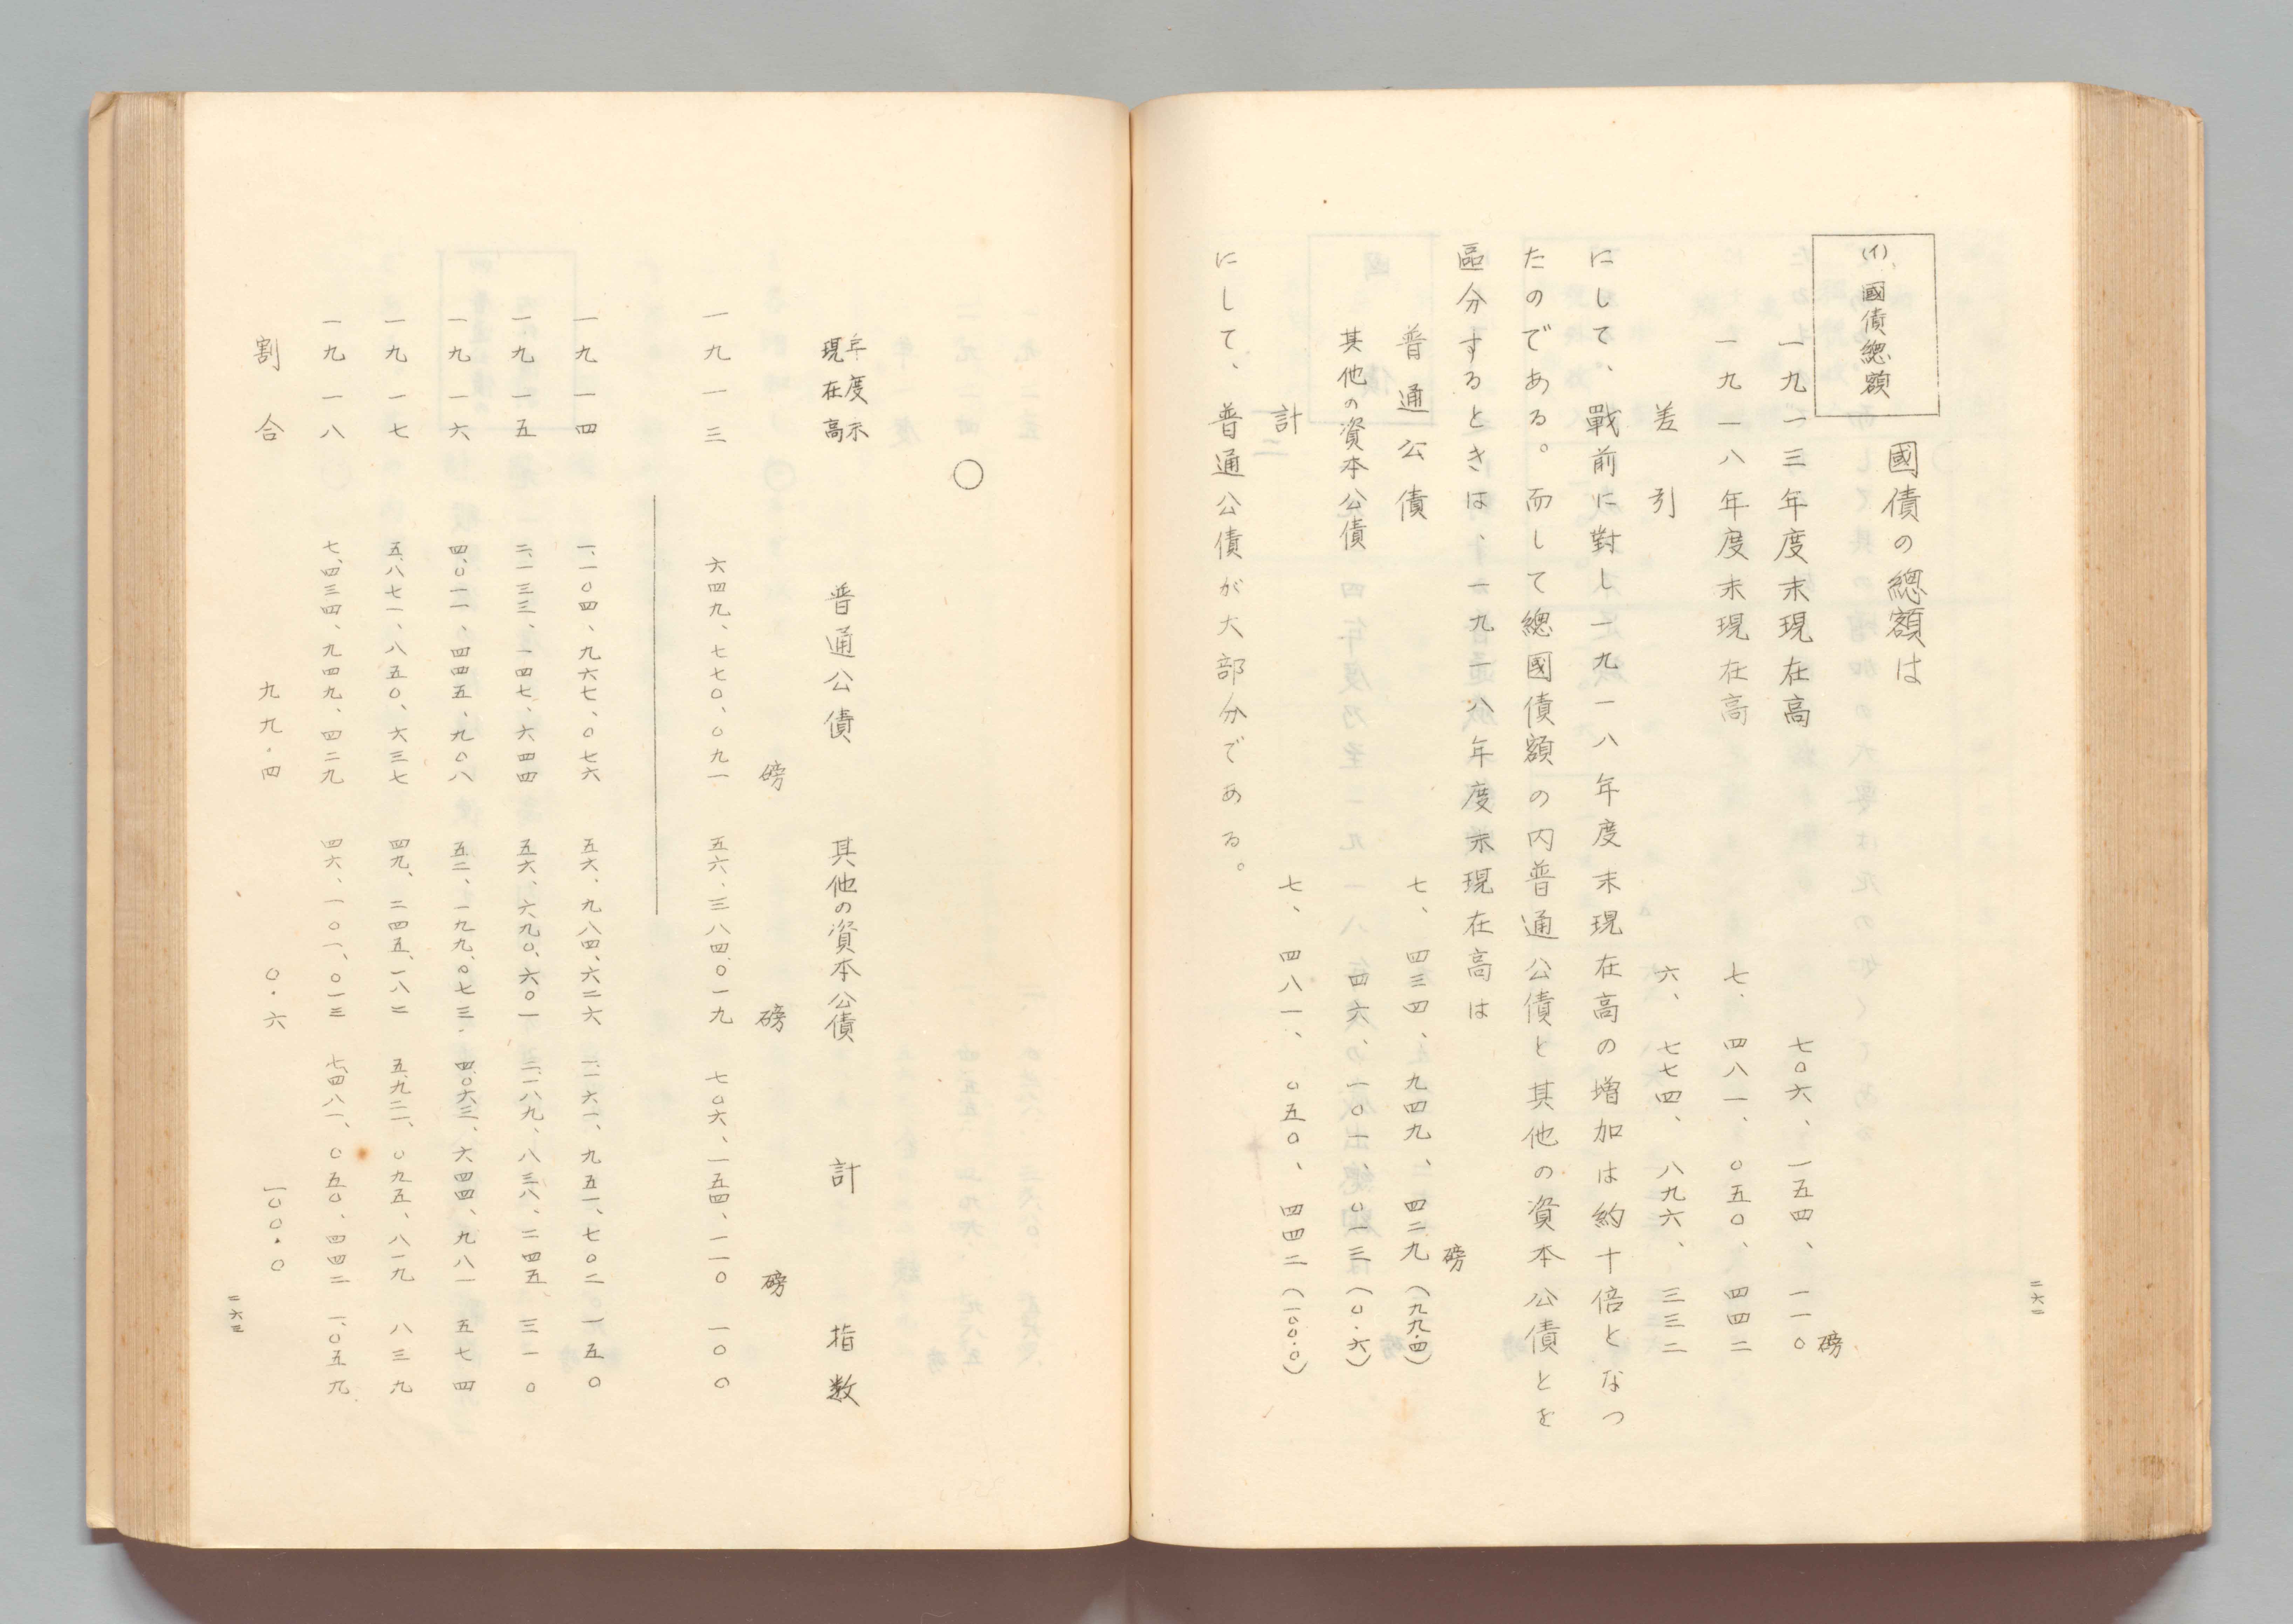 (イ) 國債總額
國債の總額は
磅
一九一三年度末現在高 七〇六、一五四、一一〇
一九一八年度末現在高 七、四八一、〇五〇、四四二
差引 六、七七四、八九六、三三二
にして、戰前に對し一九一八年度末現在高の増加は約十倍となつ
たのである。而して總國債額の内普通公債と其他の資本公債とを
區分するときは、一九一八年度末現在高は
磅
普通公債 七、四三四、九四九、四二九(九九・四)
其他の資本公債 四六、一〇一、〇一三(〇・六)
計 七、四八一、〇五〇、四四二(一〇〇・〇)
にして、普通公債が大部分である。
二六二
〇
年度末
現在高 普通公債 其他の資本公債 計 指数
磅 磅 磅
一九一三 六四九、七七〇、〇九一 五六、三八四、〇一九 七〇六、一五四、一一〇 一〇〇
一九一四 一、一〇四、九六七、〇七六 五六、九八四、六二六 一、一六一、九五一、七〇二 一五〇
一九一五 二、一三三、一四七、六四四 五六、六九〇、六〇一 二、一八九、八三八、二四五 三一〇
一九一六 四、〇一一、四四五、九〇八 五二、一九九、〇七三 四、〇六三、六四四、九八一 五七四
一九一七 五、八七一、八五〇、六三七 四九、二四五、一八二 五、九二一、〇九五、八一九 八三九
一九一八 七、四三四、九四九、四二九 四六、一〇一、〇一三 七、四八一、〇五〇、四四二 一、〇五九
割合 九九・四 〇・六 一〇〇・〇
二六三